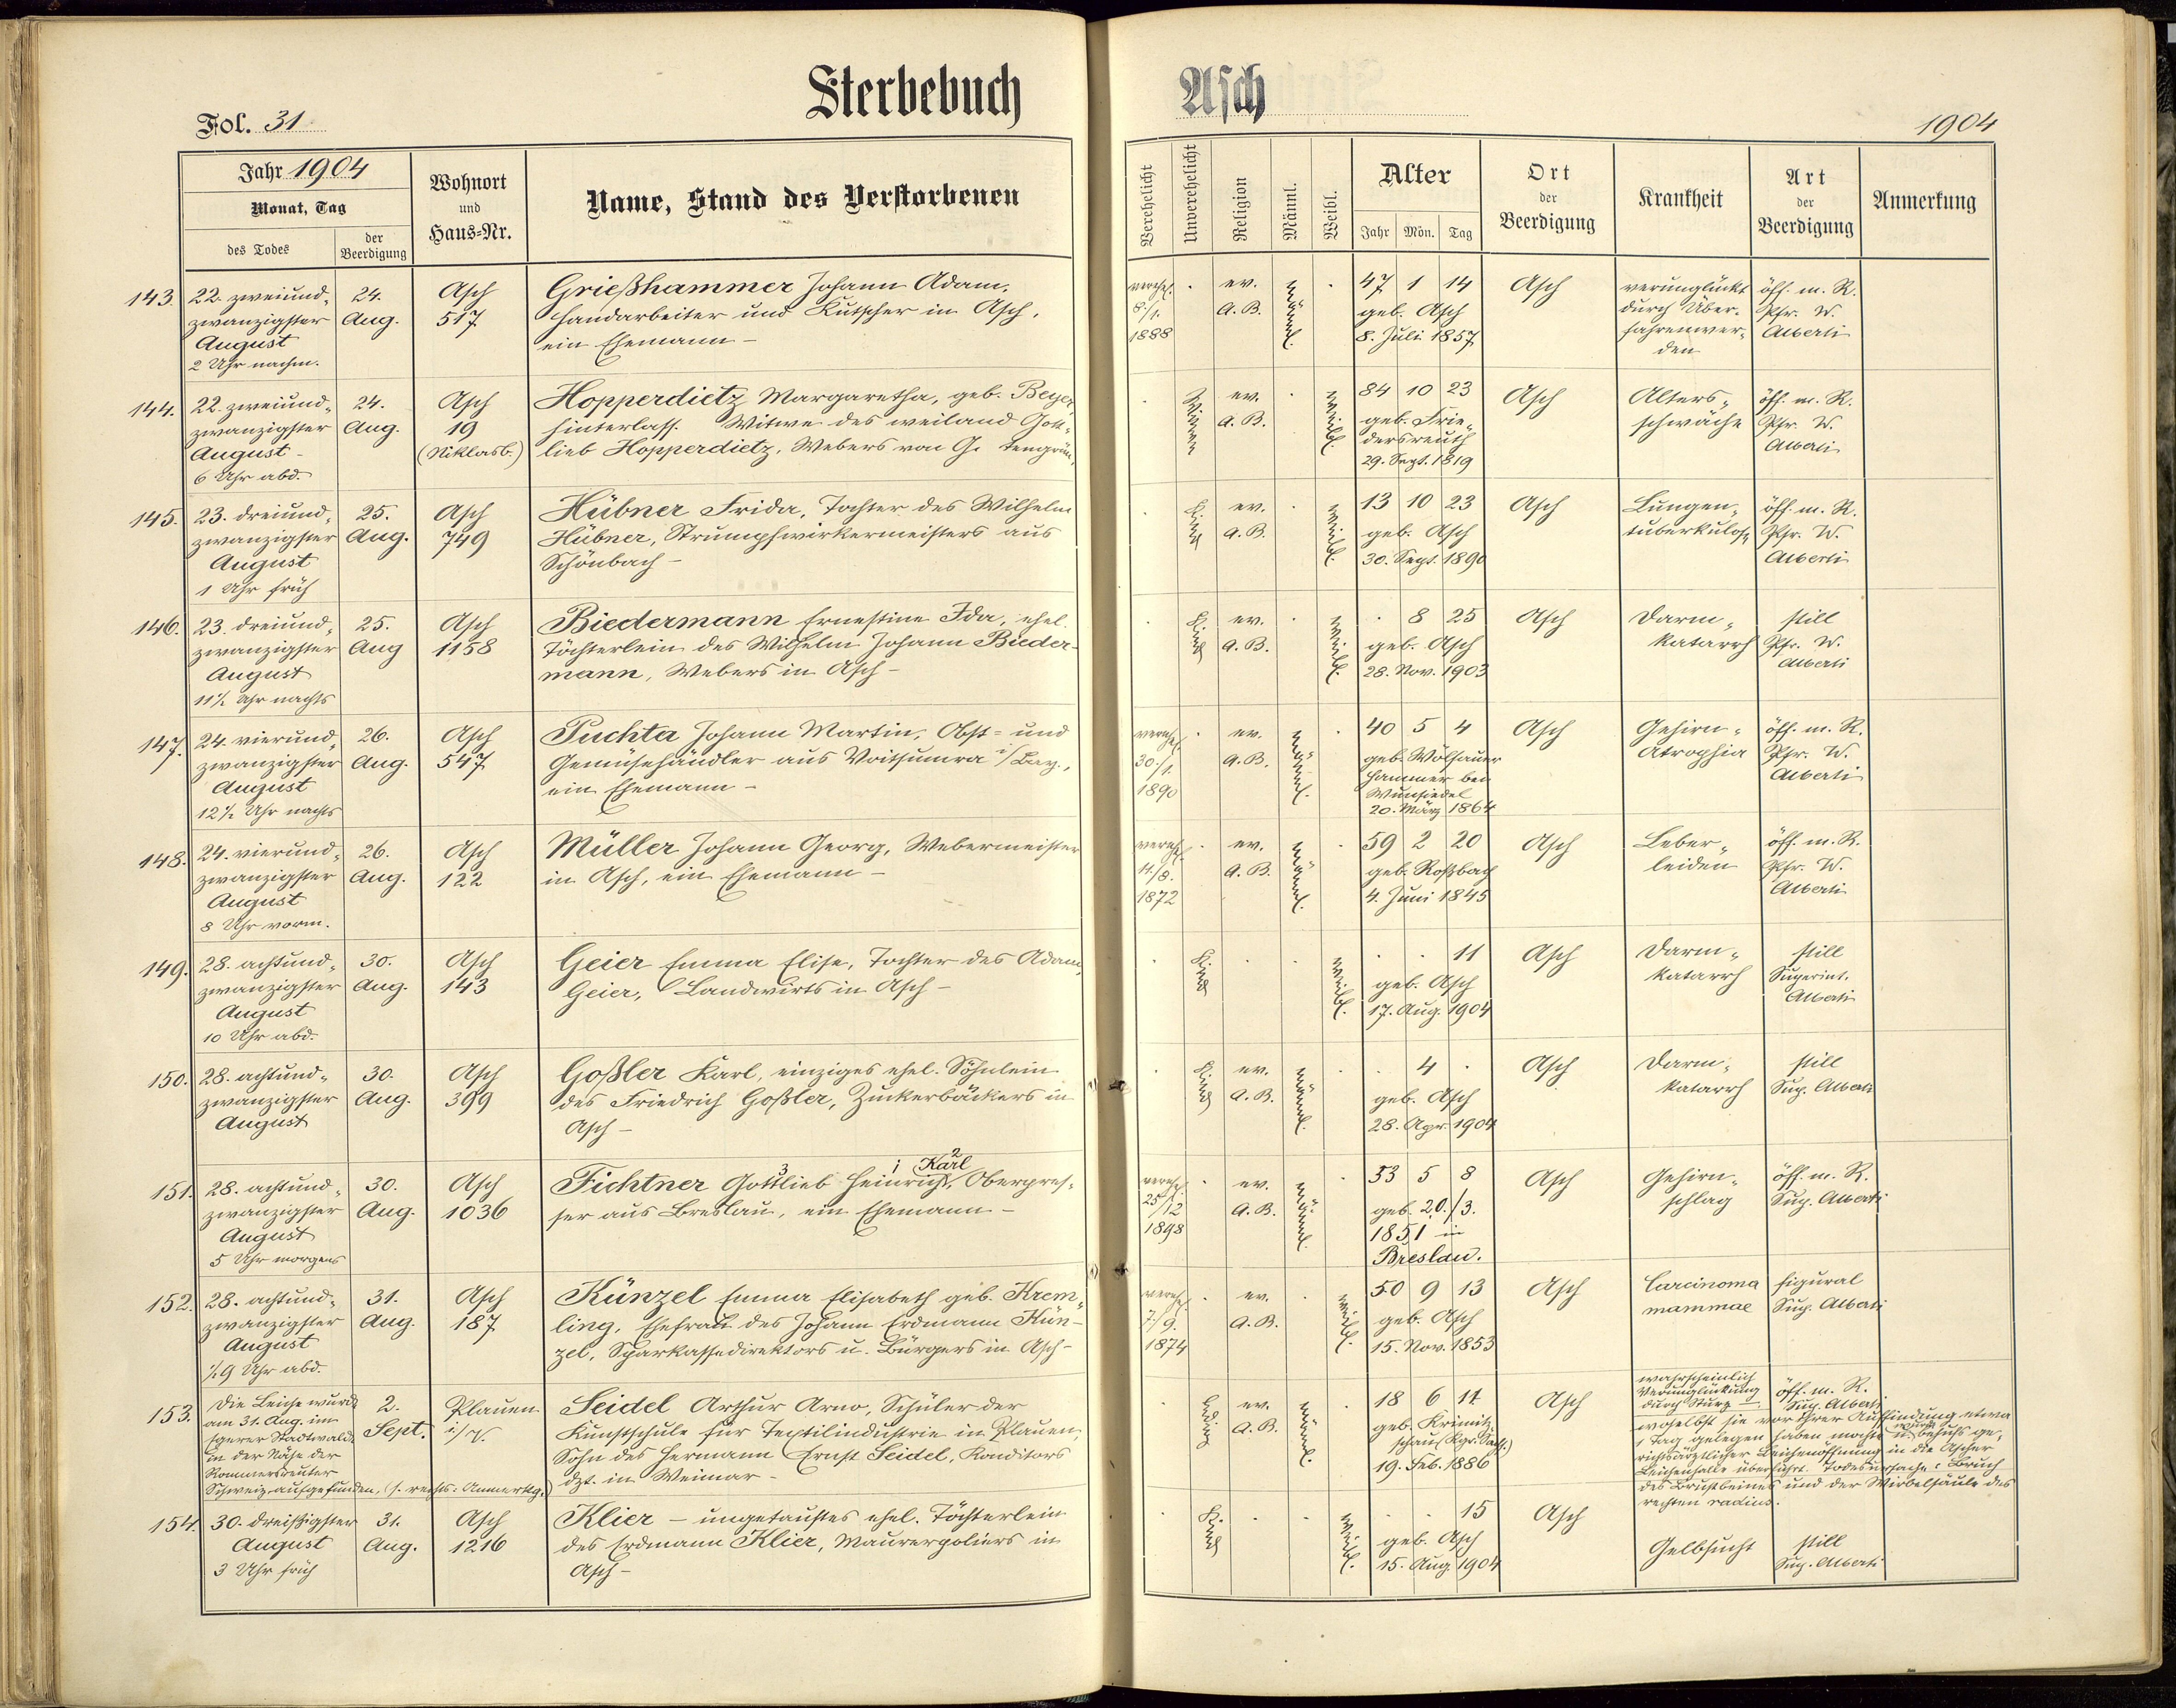 Sterbebuch
Asch
Fol. 31
1904
Jahr 1904
Monat, Tag
des Todes
der Beerdigung
Wohnort
und
Haus-Nr.
Name, Stand des Verstorbenen
Verehelicht
Unverehelicht
Religion
Männl.
Weibl.
Alter
Jahr
Mon.
Tag
Ort
der
Beerdigung
Krankheit
Art
der
Beerdigung
Anmerkung
143. 22. zweiund- 24. Asch Grießhammer Johann Adam,
zwanzigster Aug. 517 Handarbeiter und Kutscher in Asch,
August ein Ehemann –
2 Uhr nachm.
verehel. ev. männl. 47 1 14 Asch verunglückt öff. m. R.
8./1. A. B. geb. Asch durch Über- Pfr. W.
1888 8. Juli 1857 fahrenwer- Alberti
den
144. 22. zweiund- 24. Asch Hopperdietz Margaretha, geb. Beyer,
zwanzigster Aug. 19 hinterlass. Witwe des weiland Gott-
August – (Niklasb.) lieb Hopperdietz, Webers von
6 Uhr abd.
Witwe ev. weibl. 84 10 23 Asch Alters- öff. m. R.
A. B. geb. Frie- schwäche Pfr. W.
dersreuth Alberti
29. Sept. 1819
145. 23. dreiund- 25. Asch Hübner Frida, Tochter des Wilhelm
zwanzigster Aug. 749 Hübner, Strumpfwirkermeisters aus
August Schönbach –
1 Uhr früh
Kind ev. weibl. 13 10 23 Asch Lungen- öff. m. R.
A. B. geb. Asch tuberkulos. Pfr. W.
30. Sept. 1890 Alberti
146. 23. dreiund- 25. Asch Biedermann Ernestine Ida, ehel.
zwanzigster Aug 1158 Töchterlein des Wilhelm Johann Bieder-
August mann, Webers in Asch –
11½ Uhr nachts
Kind ev. weibl. 8 25 Asch Darm- still
A. B. geb. Asch katarrh Pfr. W.
28. Nov. 1903 Alberti
147. 24. vierund- 26. Asch Puchta Johann Martin, Obst- und
zwanzigster Aug. 547 Gemüsehändler aus Voitsumra i/Bay.,
August ein Ehemann –
12½ Uhr nachts
verehel. ev. männl. 40 5 4 Asch Gehirn- öff. m. R.
30./1. A. B. geb. Wölsauer Atrophia Pfr. W.
1890 hammer bei Alberti
Wunsiedel
20. März 1864
148. 24. vierund- 26. Asch Müller Johann Georg, Webermeister
zwanzigster Aug. 122 in Asch, ein Ehemann –
August
8 Uhr vorm.
verehel. ev. männl. 59 2 20 Asch Leber- öff. m. R.
11./8. A. B. geb. Roßbach leiden Pfr. W.
1872 4. Juni 1845 Alberti
149. 28. achtund- 30. Asch Geier Emma Elise, Tochter des Adam
zwanzigster Aug. 143 Geier, Landwirts in Asch –
August
10 Uhr abd.
Kind weibl. 11 Asch Darm- still
geb. Asch katarrh Superint.
17. Aug. 1904 Alberti
150. 28. achtund- 30. Asch Goßler Karl, einziges ehel. Söhnlein
zwanzigster Aug. 399 des Friedrich Goßler, Zuckerbäckers in
August Asch –
Kind ev. männl. 4 Asch Darm- still
A. B. geb. Asch katarrh Sup. Alberti
28. Apr. 1904
3 1 Karl 2
151. 28. achtund- 30. Asch Fichtner Gottlieb Heinrich, Oberpres-
zwanzigster Aug. 1036 ser aus Breslau, ein Ehemann –
August
5 Uhr morgens
verehel. ev. männl. 53 5 8 Asch Gehirn- öff. m. R.
25/12 A. B. geb. 20./3. schlag Sup. Alberti
1898 1851 in
Breslau.
152. 28. achtund- 31. Asch Künzel Emma Elisabeth geb. Krem-
zwanzigster Aug. 187 ling, Ehefrau des Johann Erdmann Kün-
August zel, Sparkassedirektors u. Bürgers in Asch –
½9 Uhr abd.
verehel. ev. weibl. 50 9 13 Asch Carcinoma figural
7./9. A. B. geb. Asch mammae Sup. Alberti
1874 15. Nov. 1853
153. Die Leiche wurde 2. Plauen Seidel Arthur Arno, Schüler der
am 31. Aug. im Sept. i/V. Kunstschule für Textilindustrie in Plauen,
Egerer Stadtwald Sohn des Hermann Ernst Seidel, Konditors
in der Nähe der dzt. in Weimar –
Rommersreuter
Schweiz aufgefunden, (s. rechts: Anmerkg.)
ledig ev. männl. 18 6 11 Asch wahrscheinlich öff. m. R.
A. B. geb. Krimitz- Verunglückung Sup. Alberti
schau (Kgr. Sachs.) durch Sturz –
19. Feb. 1886
woselbst sie vor ihrer Auffindung etwa
1 Tag gelegen haben mochte u. wurde behufs ge-
richtsärztlicher Leichenöffnung in die Ascher
Leichenhalle überführt. Todesursache: Bruch
des Brustbeines und der Wirbelsäule des
rechten radius.
154. 30. dreißigster 31. Asch Klier – ungetauftes ehel. Töchterlein
August Aug. 1216 des Erdmann Klier, Maurerpoliers in
3 Uhr früh Asch –
Kind weibl. 15 Asch Gelbsucht still
geb. Asch Sup. Alberti
15. Aug. 1904